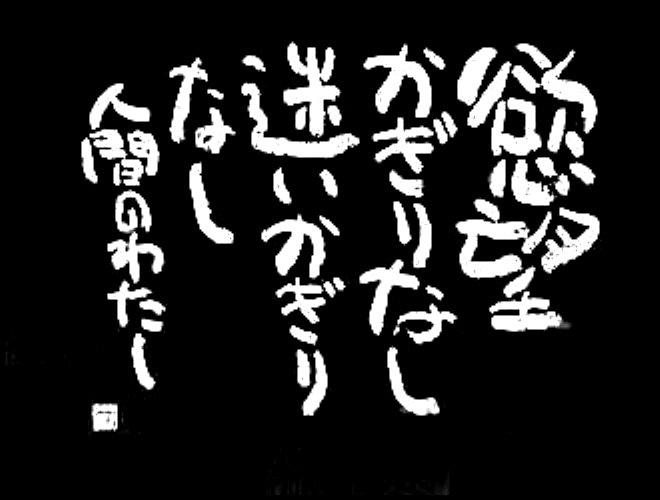 慾望
かぎりなし
迷いかぎり
なし
人間のわたし